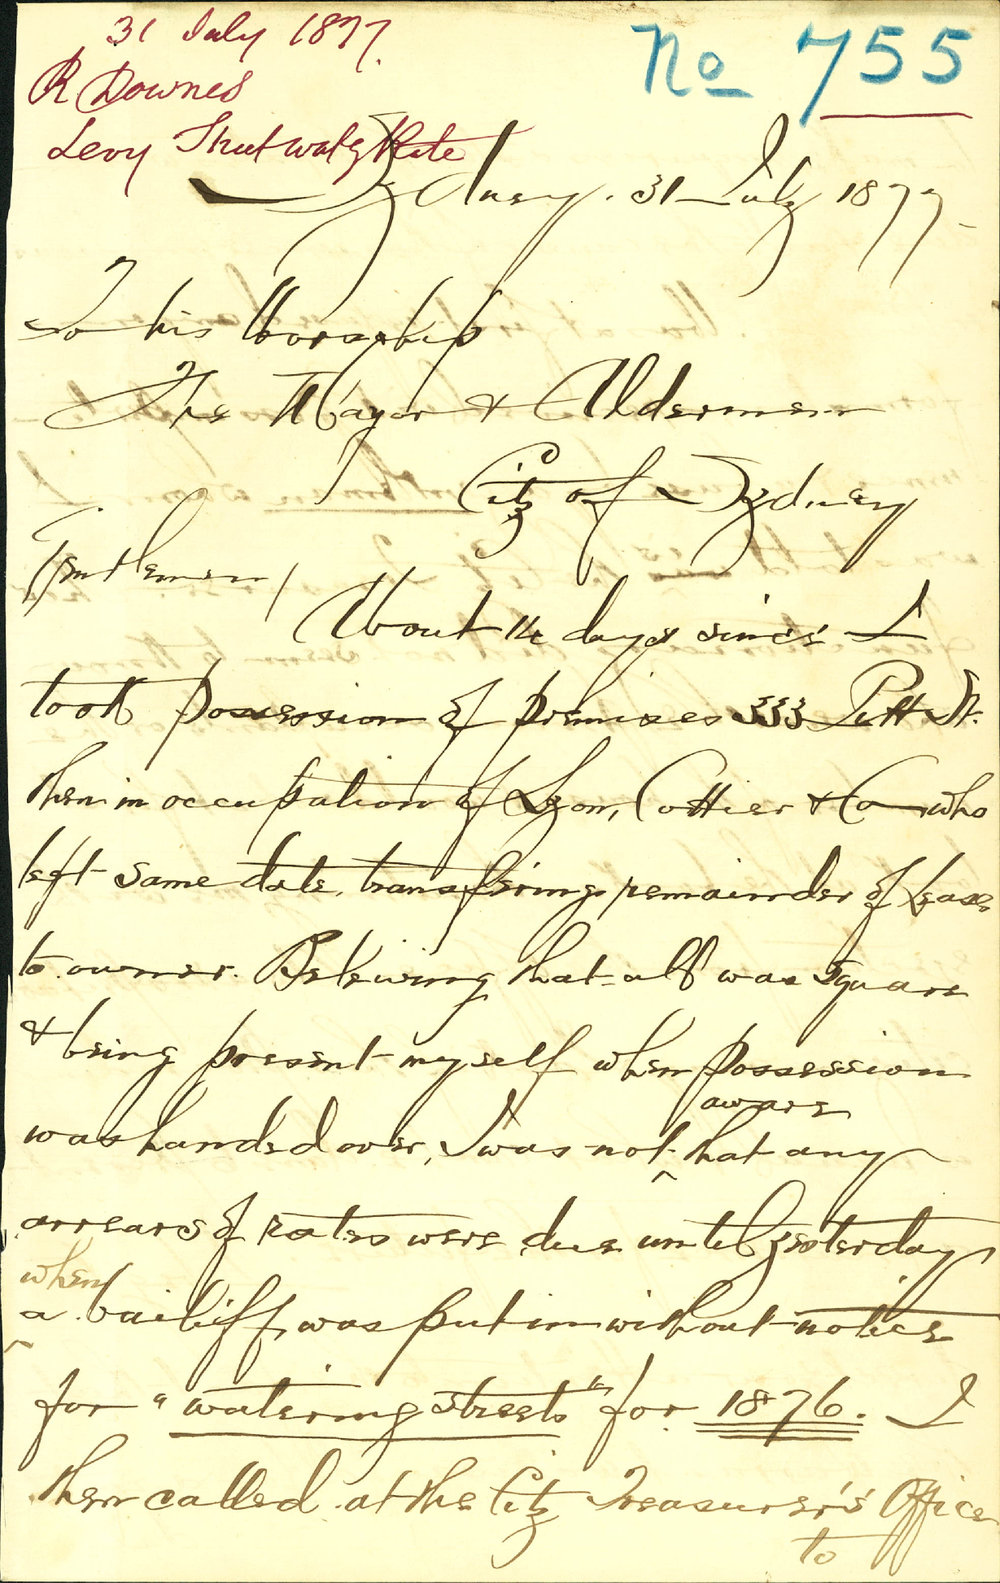 31 July 1877.
No 755
R Downes
Levy Street watg Rate
Sydney. 31 July 1877
To his Worship
The Mayor & Aldermen
City of Sydney
Gentlemen/
About 14 days since I
took possession of premises 333 Pitt St.
then in occupation of Lyon, Cottier & Co who
left same date, transfering remainder of Lease
to owner. Beleiving that all was square
& being present myself when possession
was handed over, I was not ^ aware that any
arrears of rates were due until yesterday
^ when a bailiff was put in without notice
for "watering streets" for 1876. I
then called at the City Treasurer's Office
to